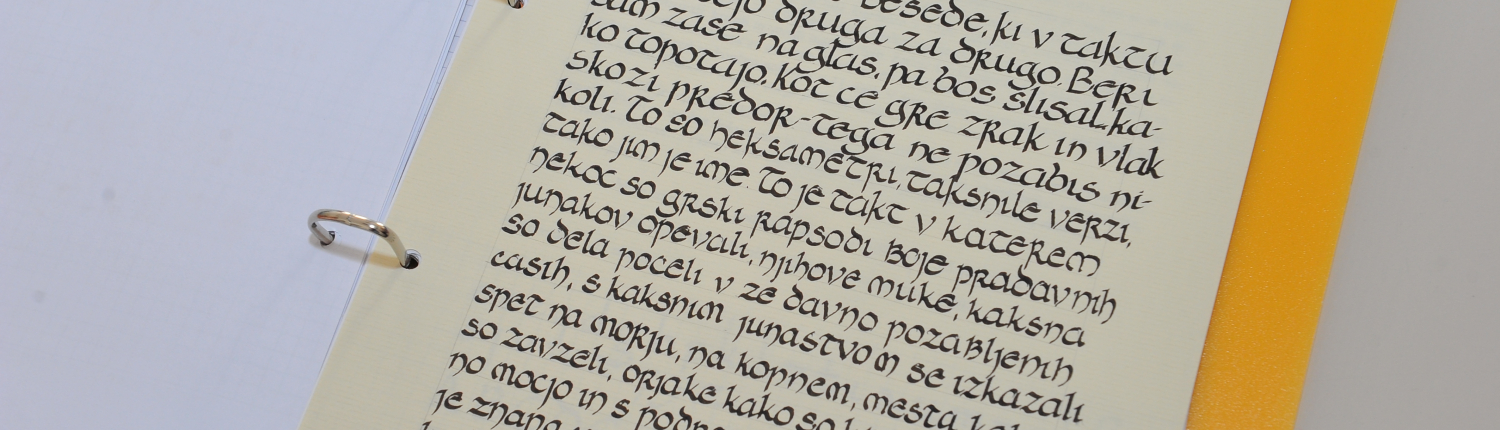 besede, ki v taktu
druga za drugo. Beri
zase na glas, pa bos slisal, ka-
ko topotajo. Kot ce gre zrak in vlak
skozi predor - tega ne pozabis ni-
koli. To so heksametri, taksnile verzi,
tako jim je ime. To je takt v katerem
nekoc so grski rapsodi boje pradavnih
junakov opevali, njihove muke, kaksna
so dela poceli v ze davno pozabljenih
casih, s kaksnim junastvom se izkazali
spet na morju, na kopnem, mesta
so zavzeli, orjake kako so
no mocjo in s
je znana